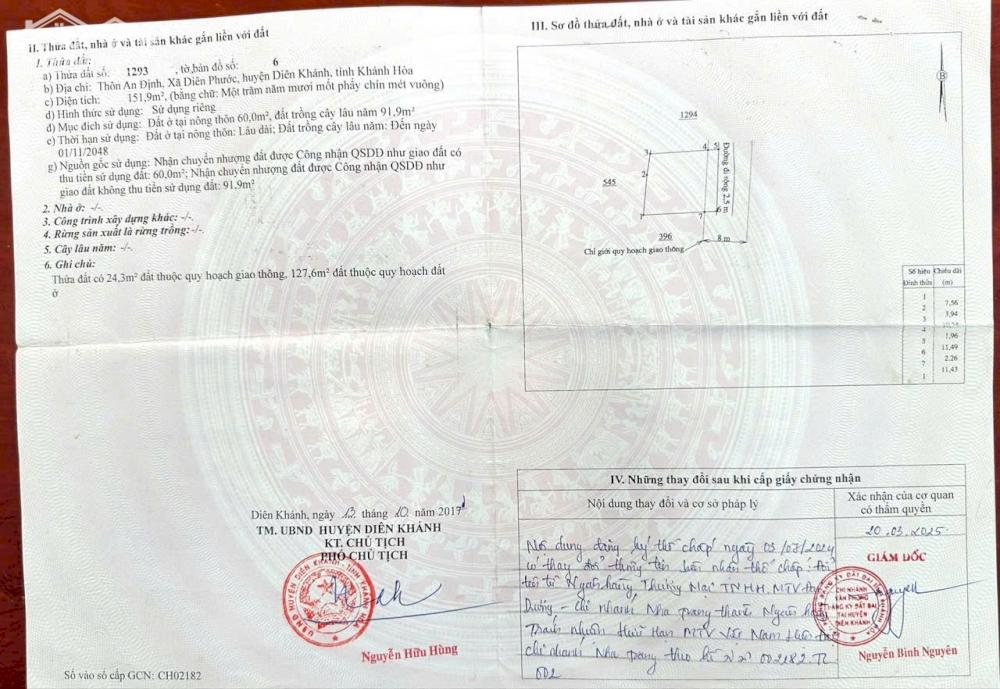 II. Thửa đất, nhà ở và tài sản khác gắn liền với đất
1. Thửa đất:
a) Thửa đất số: 1293 , tờ bản đồ số: 6
b) Địa chỉ: Thôn An Định, Xã Diên Phước, huyện Diên Khánh, tỉnh Khánh Hòa
c) Diện tích: 151,9m², (bằng chữ: Một trăm năm mươi mốt phẩy chín mét vuông)
d) Hình thức sử dụng: Sử dụng riêng
đ) Mục đích sử dụng: Đất ở tại nông thôn 60,0m², đất trồng cây lâu năm 91,9m²
e) Thời hạn sử dụng: Đất ở tại nông thôn: Lâu dài; Đất trồng cây lâu năm: Đến ngày
01/11/2048
g) Nguồn gốc sử dụng: Nhận chuyển nhượng đất được Công nhận QSDĐ như giao đất có
thu tiền sử dụng đất: 60,0m²; Nhận chuyển nhượng đất được Công nhận QSDĐ như
giao đất không thu tiền sử dụng đất: 91,9m²
2. Nhà ở: -/-.
3. Công trình xây dựng khác: -/-.
4. Rừng sản xuất là rừng trồng: -/-.
5. Cây lâu năm: -/-.
6. Ghi chú:
Thửa đất có 24,3m² đất thuộc quy hoạch giao thông, 127,6m² đất thuộc quy hoạch đất
ở
Diên Khánh, ngày 13 tháng 10 năm 2017
TM. UBND HUYỆN DIÊN KHÁNH
KT. CHỦ TỊCH
PHÓ CHỦ TỊCH
UBND HUYỆN DIÊN KHÁNH - TỈNH KHÁNH HÒA
Nguyễn Hữu Hùng
Số vào sổ cấp GCN: CH02182
III. Sơ đồ thửa đất, nhà ở và tài sản khác gắn liền với đất
B
1294
3 4 5
545
2
Đường đi rộng 2,5 m
1 7 6
396
8 m
Chỉ giới quy hoạch giao thông
Số hiệu Chiều dài
Đỉnh thửa (m)
1
7,56
2
3,94
3
4
1,96
5
11,49
6
2,26
7
11,43
1
IV. Những thay đổi sau khi cấp giấy chứng nhận
Nội dung thay đổi và cơ sở pháp lý
Xác nhận của cơ quan
có thẩm quyền
Nội dung đăng ký thế chấp ngày 03/07/2024
có thay đổi thông tin bên nhận thế chấp: đổi
tên từ Ngân hàng Thương Mại TNHH MTV
Dương - chi nhánh Nha Trang thành Ngân hàng
Trách Nhiệm Hữu Hạn MTV Việt Nam
chi nhánh Nha Trang theo hồ sơ số 002182.
002
20.03.2025
GIÁM ĐỐC
CHI NHÁNH
VĂN PHÒNG
ĐĂNG KÝ ĐẤT ĐAI
TẠI HUYỆN
DIÊN KHÁNH
Nguyễn Bình Nguyên